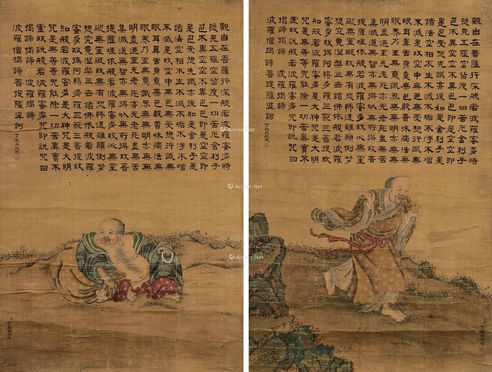 觀自在菩薩行深般若波羅蜜多時
照見五蘊皆空度一切苦厄舍利子
色不異空空不異色色即是空空即
是色受想行識亦復如是舍利子是
諸法空相不生不滅不垢不淨不增
不減是故空中無色無受想行識無
眼耳鼻舌身意無色聲香味觸法無
眼界乃至無意識界無無明亦無無
明盡乃至無老死亦無老死盡無苦
集滅道無智亦無得以無所得故菩
提薩埵依般若波羅蜜多故心無罣
礙無罣礙故無有恐怖遠離顛倒夢
想究竟涅槃三世諸佛依般若波羅
蜜多故得阿耨多羅三藐三菩提故
知般若波羅蜜多是大神咒是大明
咒是無上咒是無等等咒能除一切苦真實不
虛故說般若波羅蜜多咒即說咒曰
揭諦揭諦波羅揭諦
波羅僧揭諦菩提薩婆訶
觀自在菩薩行深般若波羅蜜多時
照見五蘊皆空度一切苦厄舍利子
色不異空空不異色色即是空空即
是色受想行識亦復如是舍利子是
諸法空相不生不滅不垢不淨不增
不減是故空中無色無受想行識無
眼耳鼻舌身意無色聲香味觸法無
眼界乃至無意識界無無明亦無無
明盡乃至無老死亦無老死盡無苦
集滅道無智亦無得以無所得故菩
提薩埵依般若波羅蜜多故心無罣
礙無罣礙故無有恐怖遠離顛倒夢
想究竟涅槃三世諸佛依般若波羅
蜜多故得阿耨多羅三藐三菩提故
知般若波羅蜜多是大神咒是大明
咒是無上咒是無等等咒能除一切苦真實不
虛故說般若波羅蜜多咒即說咒曰
揭諦揭諦波羅揭諦
波羅僧揭諦菩提薩婆訶